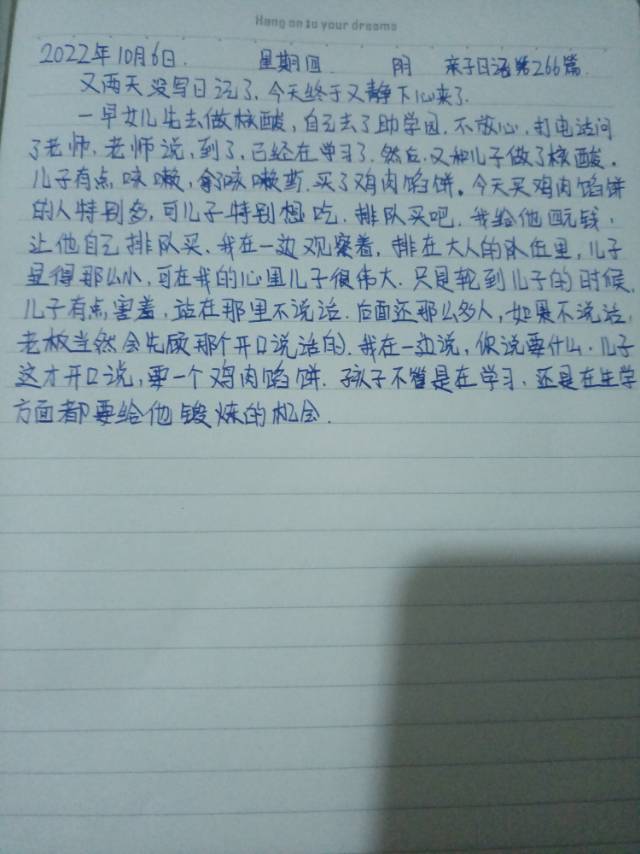 Hang on to your dreams
2022年10月6日. 星期四 阴 亲子日记第266篇.
又两天没写日记了,今天终于又静下心来了.
一早女儿先去做核酸,自己去了助学园.不放心,打电话问
了老师.老师说,到了,已经在学习了.然后,又和儿子做了核酸.
儿子有点,咳嗽,拿了咳嗽药.买了鸡肉馅饼。今天买鸡肉馅饼
的人特别多,可儿子特别想吃.排队买吧.我给他四元钱,
让他自己排队买.我在一边观察着,排在大人的队伍里,儿子
显得那么小,可在我的心里儿子很伟大.只是轮到儿子的时候,
儿子有点,害羞,站在那里不说话.后面还那么多人,如果不说话,
老板当然会先顾那个开口说话的.我在一边说,你说要什么.儿子
这才开口说,要一个鸡肉馅饼.孩子不管是在学习.还是在生学
方面都要给他锻炼的机会.